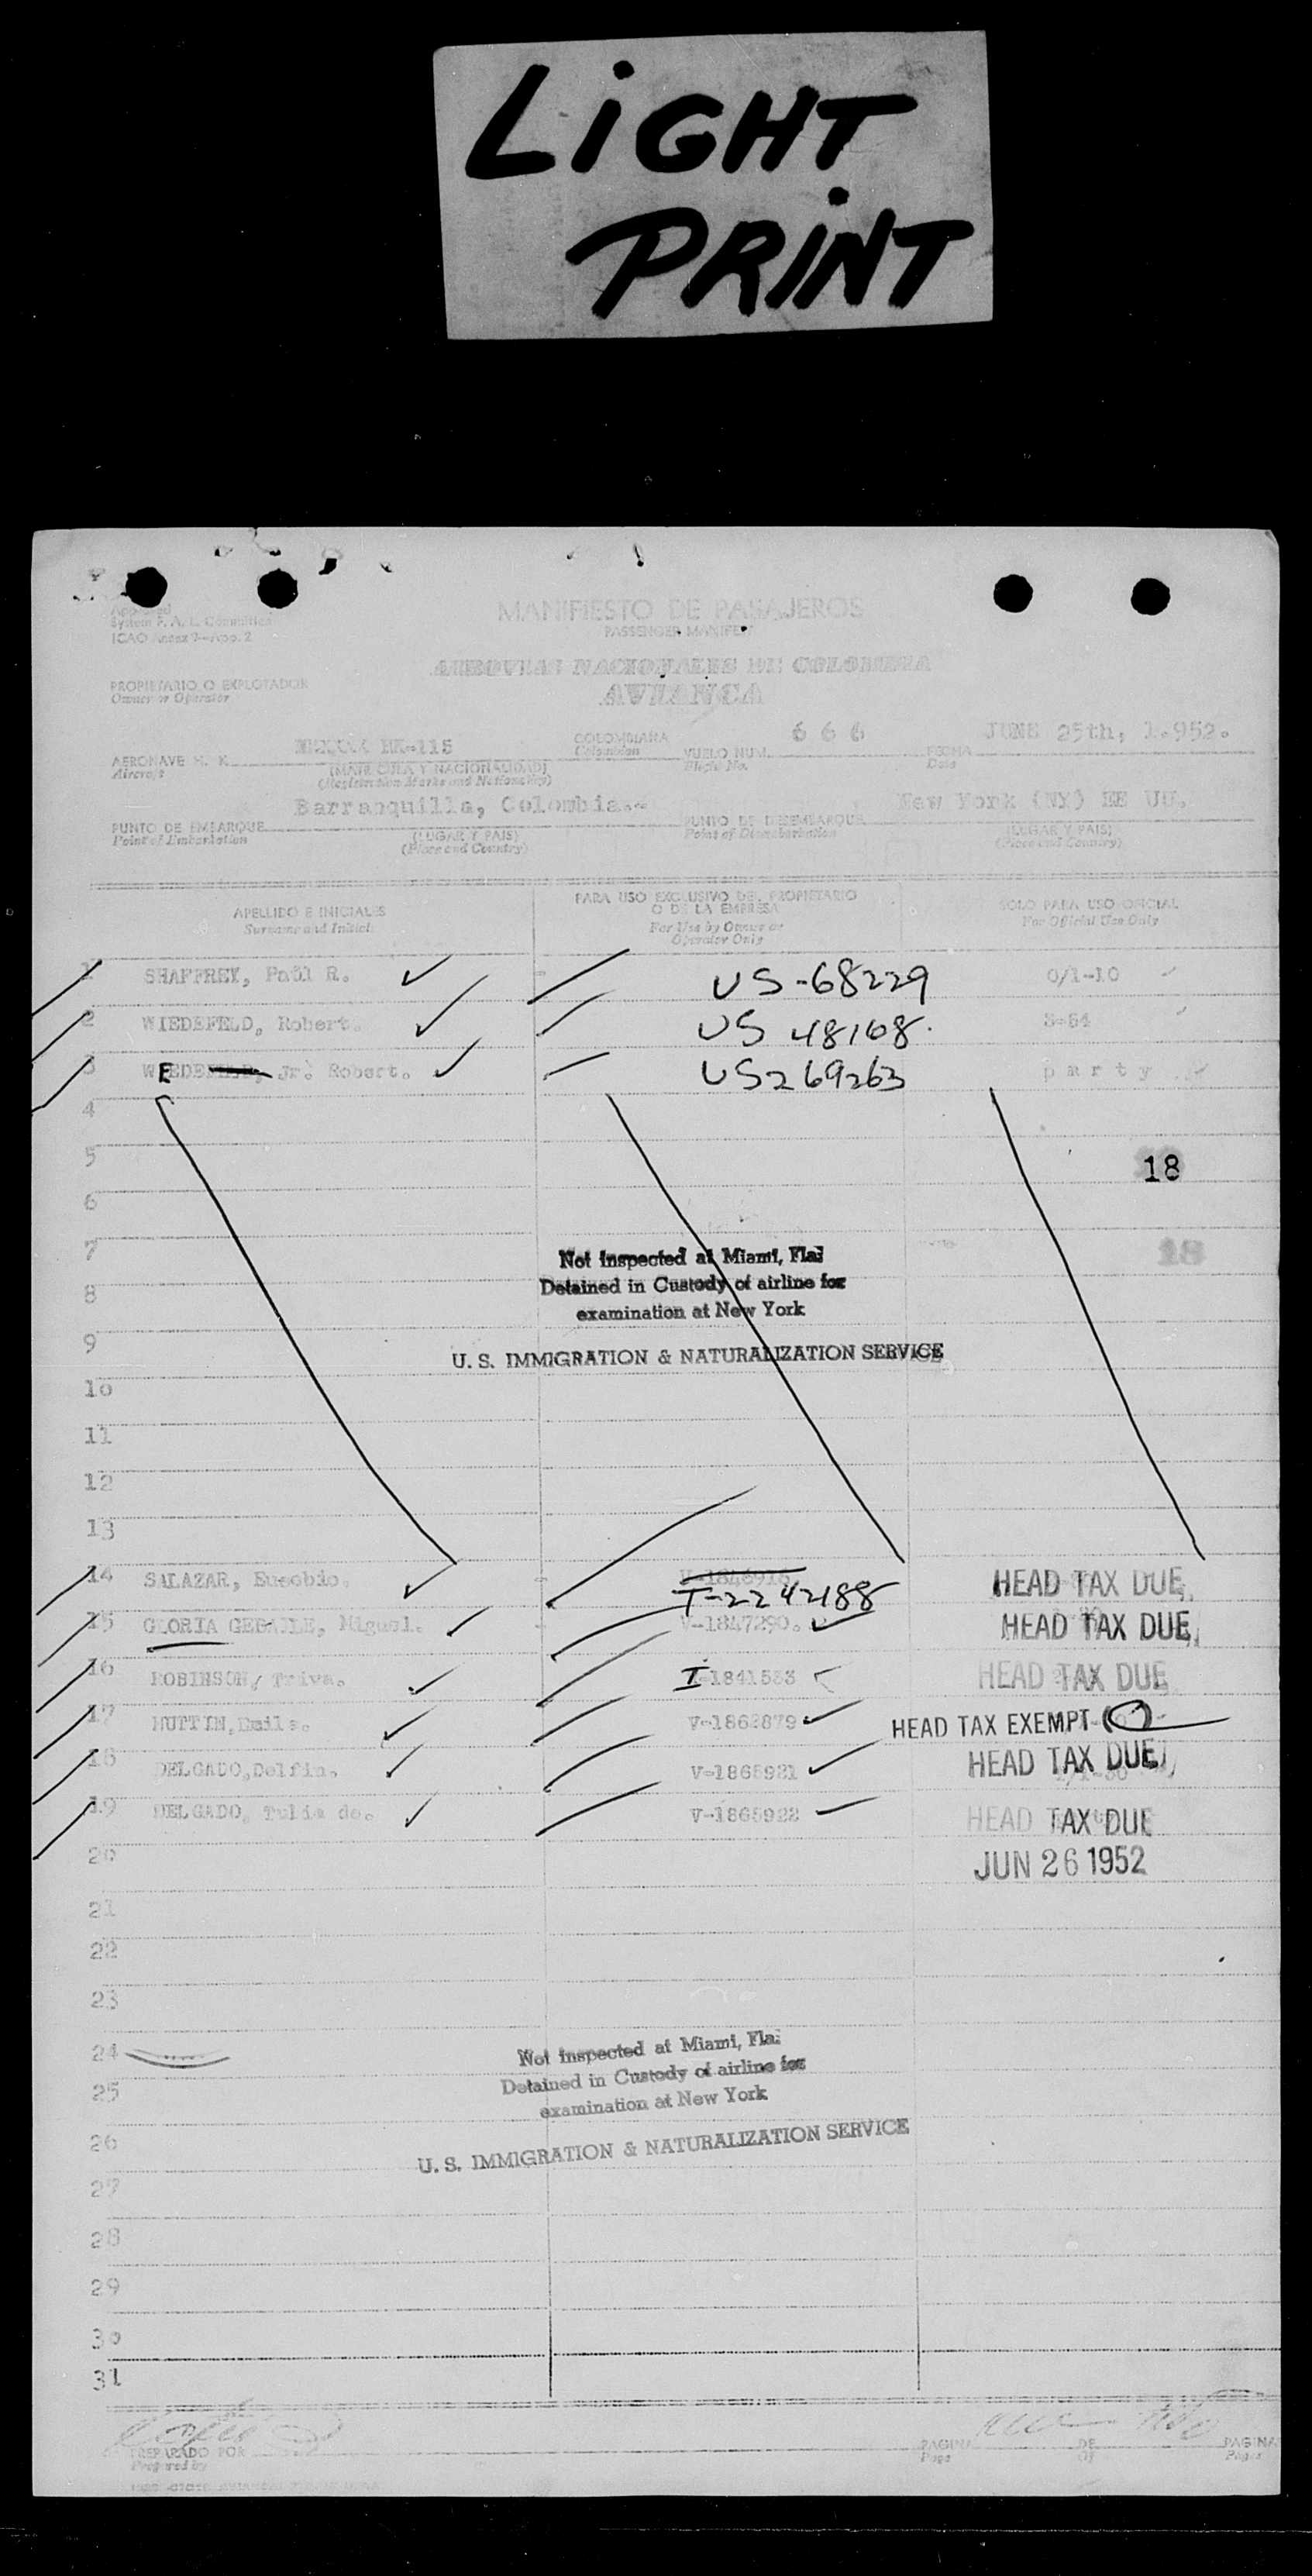 LiGHT
PRiNT
Approved
System F. A. L. Committee
ICAO Annex 9-App. 2
MANIFIESTO DE PASAJEROS
PASSENGER MANIFEST
AEROVIAS NACIONALES DE COLOMBIA
AVIANCA
PROPIETARIO O EXPLOTADOR
Owner or Operator
AERONAVE H. K. HK-115 COLOMBIANA VUELO NUM. 6 6 6 FECHA JUNE 25th, 1.952.
Aircraft (MATRICULA Y NACIONALIDAD) Colombian Flight No. Date
(Registration Marks and Nationality)
PUNTO DE EMBARQUE Barranquilla, Colombia.- PUNTO DE DESEMBARQUE New York (NY) EE UU.
Point of Embarkation (LUGAR Y PAIS) Point of Disembarkation (LUGAR Y PAIS)
(Place and Country) (Place and Country)
APELLIDO E INICIALES PARA USO EXCLUSIVO DEL PROPIETARIO O DE LA EMPRESA SOLO PARA USO OFICIAL
Surname and Initials For Use by Owner or Operator Only For Official Use Only
1 SHAFFREY, Paul R. US-68229 0/1-10
2 WIEDEFELD, Robert. US 48168. 3-54
3 Jr. Robert. US269263 party
4
5 18
6
7 18
Not Inspected at Miami, Fla.
8 Detained in Custody of airline for
examination at New York
9 U. S. IMMIGRATION & NATURALIZATION SERVICE
10
11
12
13
14 SALAZAR, Eusebio. T-2242188 HEAD TAX DUE
15 GLORIA Miguel. V-1847290. HEAD TAX DUE
16 ROBINSON, HEAD TAX DUE
17 V-1862879 HEAD TAX EXEMPT
18 DELGADO, Delfin. V-1865921 HEAD TAX DUE
19 DELGADO, Tulia de. V-1865922 HEAD TAX DUE
20 JUN 26 1952
21
22
23
24 Not Inspected at Miami, Fla.
25 Detained in Custody of airline for
examination at New York
26 U. S. IMMIGRATION & NATURALIZATION SERVICE
27
28
29
30
31
PREPARADO POR PAGINA DE PAGINA
Prepared by Page Of Pages